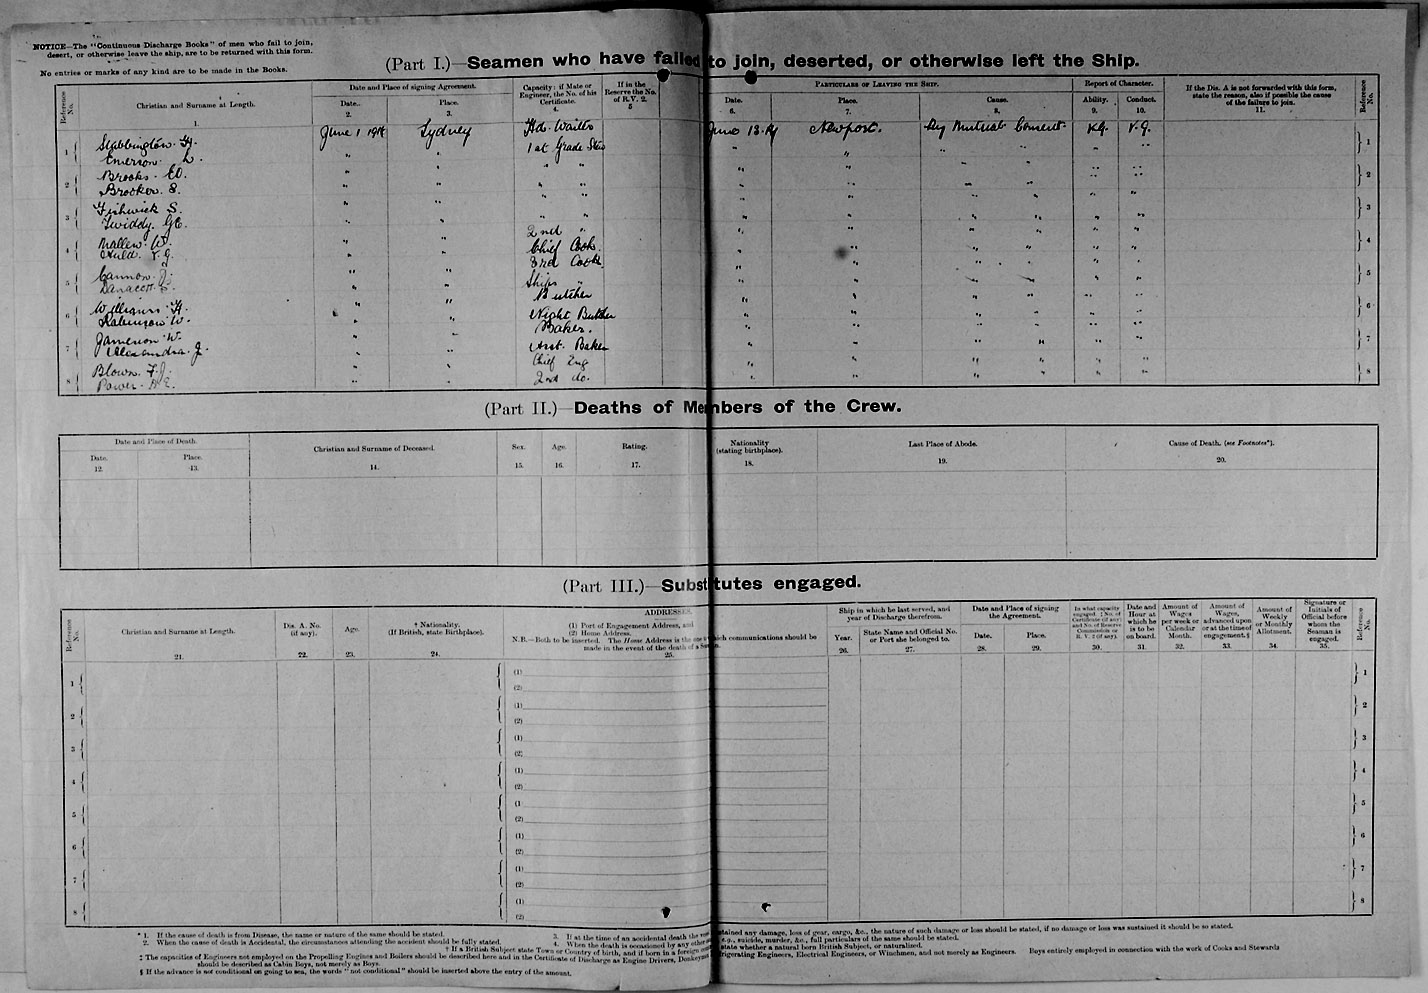 NOTICE—The "Continuous Discharge Books" of men who fail to join,
desert, or otherwise leave the ship, are to be returned with this form.
No entries or marks of any kind are to be made in the Books.
(Part I.)—Seamen who have failed to join, deserted, or otherwise left the Ship.
Reference No.
Christian and Surname at Length.
1.
Date and Place of signing Agreement.
Date.
2.
Place.
3.
Capacity: if Mate or
Engineer, the No. of his
Certificate.
4.
If in the
Reserve the No.
of R.V. 2.
5
Particulars of Leaving the Ship.
Date.
6.
Place.
7.
Cause.
8.
Report of Character.
Ability.
9.
Conduct.
10.
If the Dis. A is not forwarded with this form,
state the reason, also if possible the cause
of the failure to join.
11.
Reference No.
Stabbington. H. June 1 Sydney Hd. Waiter June 13 Newport. By Mutual Consent V.G. V.G.
1 Emerson L. " " 1st Grade Stew " " " " " " 1
Brooks. " " " " " " " " " "
2 Brooker. S. " " " " " " " " " " 2
Fishwick S. " " " " " " " " " "
3 Twiddy. G.E. " " " " " " " " " " 3
W. " " 2nd " " " " " " "
4 " " Chief Cook. " " " " " " 4
Cannon. J. " " 3rd Cook " " " " " "
5 " " Ships " " " " " " " 5
Williams. H. " " Butcher " " " " " "
6 Robinson W. " " Night Butcher " " " " " " 6
Jameson W. " " Baker. " " " " " "
7 Alexandra. J. " " Asst. Baker " " " " " " 7
Blown. F.J. " " Chief Eng " " " " " "
8 Power. " " 2nd do. " " " " " " 8
(Part II.)—Deaths of Members of the Crew.
Date and Place of Death.
Date.
12.
Place.
13.
Christian and Surname of Deceased.
14.
Sex.
15.
Age.
16.
Rating.
17.
Nationality
(stating birthplace).
18.
Last Place of Abode.
19.
Cause of Death. (see Footnotes*).
20.
(Part III.)—Substitutes engaged.
Reference No.
Christian and Surname at Length.
21.
Dis. A. No.
(if any).
22.
Age.
23.
† Nationality.
(If British, state Birthplace).
24.
ADDRESSES.
(1) Port of Engagement Address, and
(2) Home Address.
N.B.—Both to be inserted. The Home Address is the one to which communications should be
made in the event of the death of a Seaman.
25.
Ship in which he last served, and
year of Discharge therefrom.
Year.
26.
State Name and Official No.
or Port she belonged to.
27.
Date and Place of signing
the Agreement.
Date.
28.
Place.
29.
In what capacity
engaged. ‡ No. of
Certificate (if any)
and No. of Reserve
Commission or
R. V. 2 (if any).
30.
Date and
Hour at
which he
is to be
on board.
31.
Amount of
Wages
per week or
Calendar
Month.
32.
Amount of
Wages,
advanced upon
or at the time of
engagement.§
33.
Amount of
Weekly
or Monthly
Allotment.
34.
Signature or
Initials of
Official before
whom the
Seaman is
engaged.
35.
Reference No.
1 (1) 1
(2)
2 (1) 2
(2)
3 (1) 3
(2)
4 (1) 4
(2)
5 (1 5
(2)
6 (1) 6
(2)
7 (1) 7
(2)
8 (1) 8
(2)
* 1. If the cause of death is from Disease, the name or nature of the same should be stated.
2. When the cause of death is Accidental, the circumstances attending the accident should be fully stated.
3. If at the time of an accidental death the tained any damage, loss of gear, cargo, &c., the nature of such damage or loss should be stated, if no damage or loss was sustained it should be so stated.
4. When the death is occasioned by any other e.g., suicide, murder, &c., full particulars of the same should be stated.
† If a British Subject state Town or Country of birth, and if born in a foreign state whether a natural born British Subject, or naturalised.
‡ The capacities of Engineers not employed on the Propelling Engines and Boilers should be described here and in the Certificate of Discharge as Engine Drivers, Donkeymen, Refrigerating Engineers, Electrical Engineers, or Winchmen, and not merely as Engineers. Boys entirely employed in connection with the work of Cooks and Stewards
should be described as Cabin Boys, not merely as Boys.
§ If the advance is not conditional on going to sea, the words "not conditional" should be inserted above the entry of the amount.